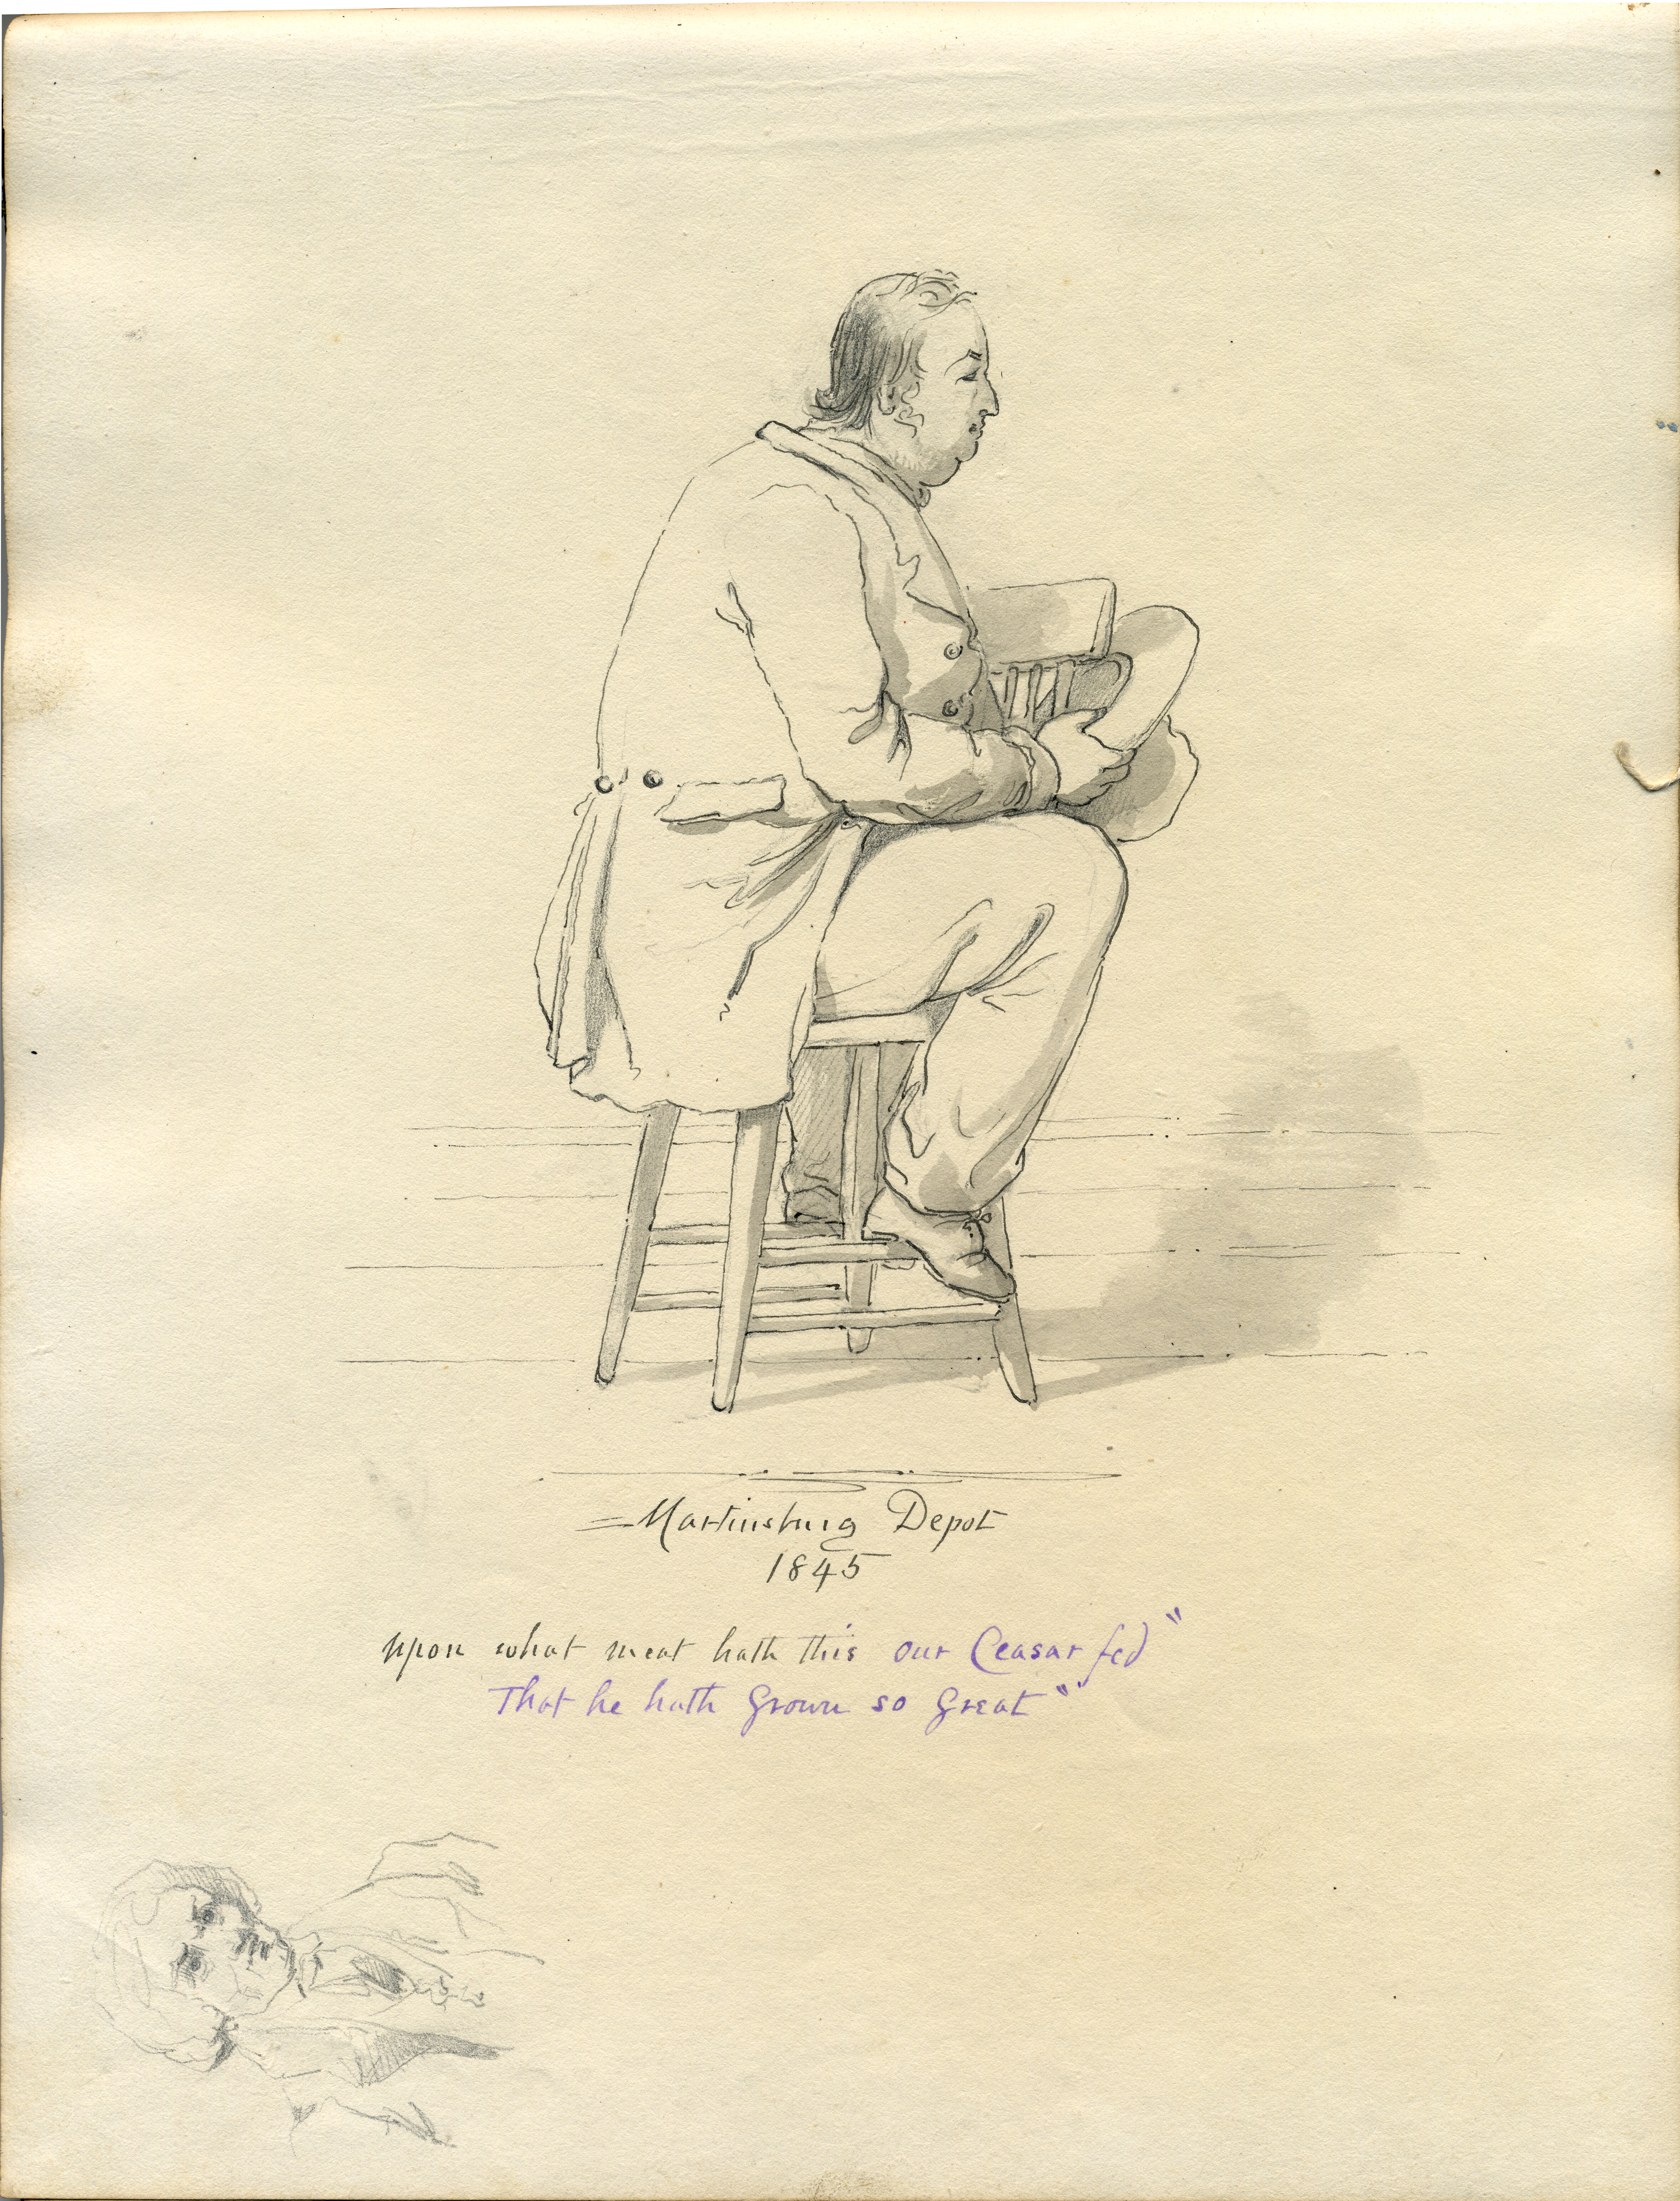 Martinsburg Depot
1845
upon what meat hath this our Ceasar fed"
That he hath grown so great"